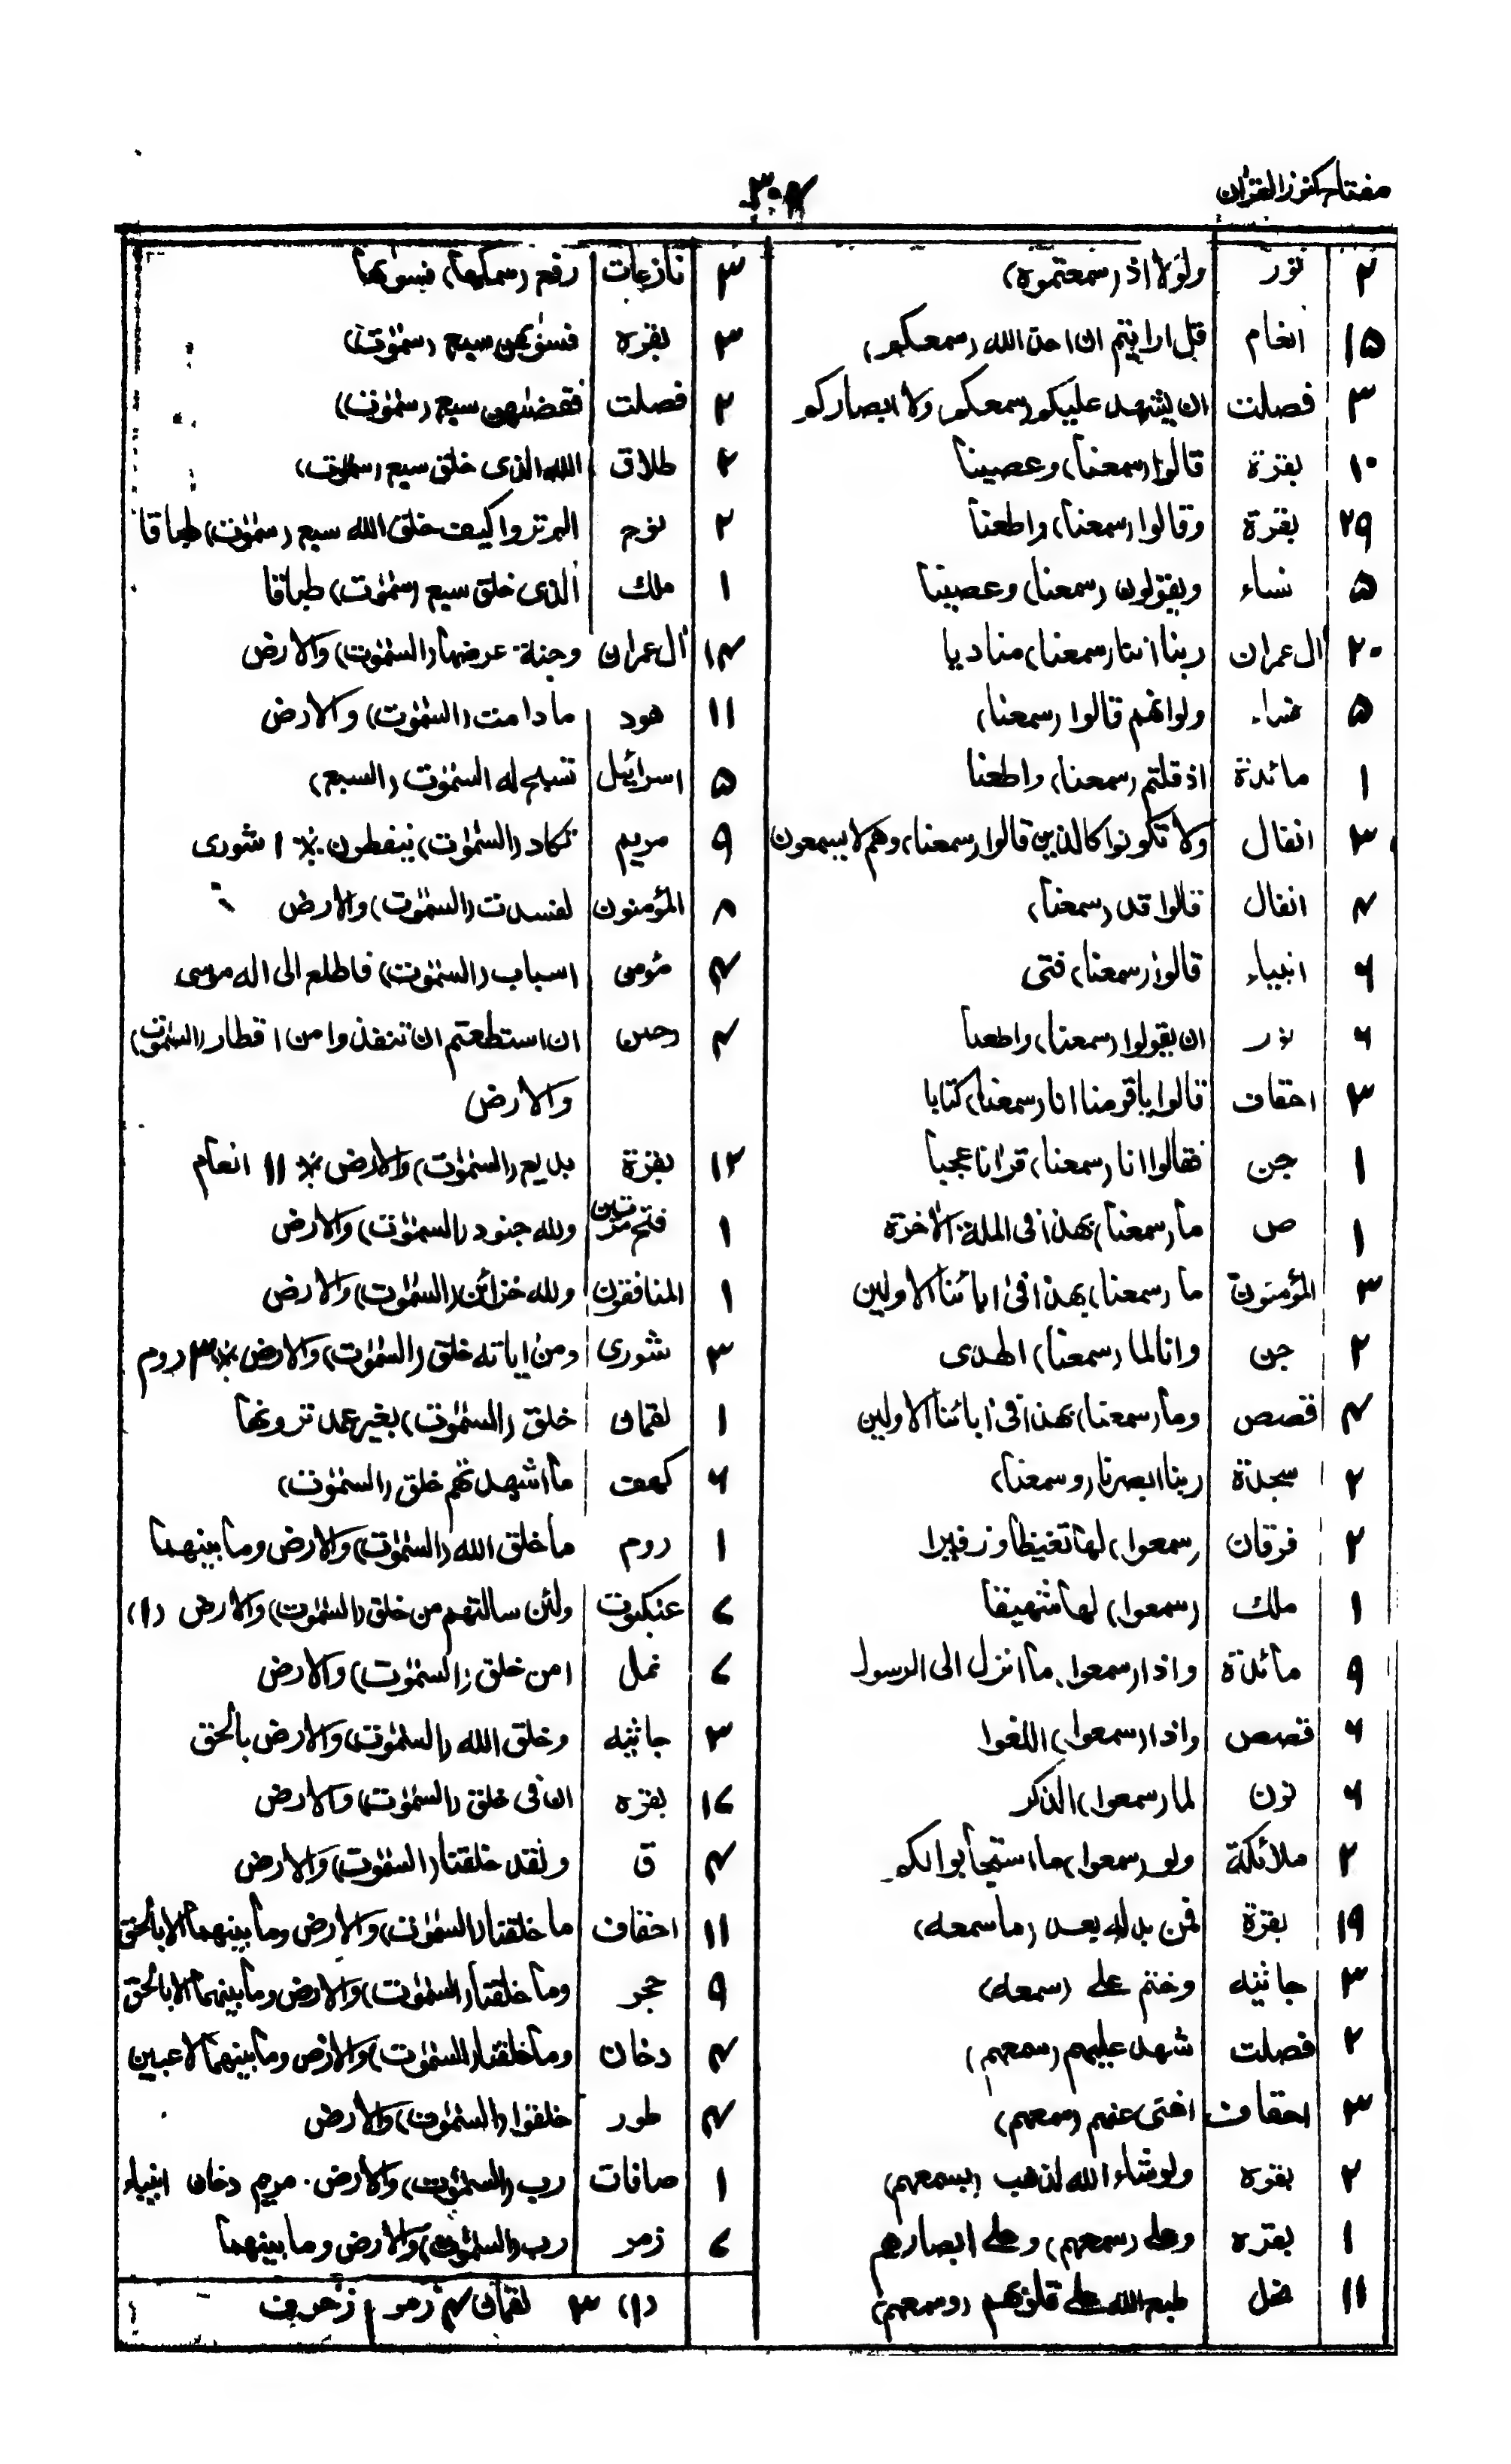 مفتاح کنوز القرآن
۳۰۴
۲ نور ولولا اذ (سمعتموه)
۱۵ انعام قل ارایتم ان اخذ الله (سمعکم)
۳ فصلت ان یشهد علیکم (سمعکم) ولا ابصارکم
۱۰ بقرة قالوا (سمعنا) وعصینا
۲۹ بقرة وقالوا (سمعنا) واطعنا
۵ نساء ویقولون (سمعنا) وعصینا
۲۰ آل عمران ربنا اننا (سمعنا) منادیا
۵ نساء ولوانهم قالوا (سمعنا)
۱ مائدة اذ قلتم (سمعنا) واطعنا
۳ انفال ولا تکونوا کالذین قالوا (سمعنا) وهم لا یسمعون
۴ انفال قالوا قد (سمعنا)
۶ انبیاء قالوا (سمعنا) فتی
۶ نور ان یقولوا (سمعنا) واطعنا
۳ احقاف قالوا یاقومنا انا (سمعنا) کتابا
۱ جن فقالوا انا (سمعنا) قرانا عجبا
۱ ص ما (سمعنا) بهذا فی الملة الآخرة
۳ المؤمنون ما (سمعنا) بهذا فی آبائنا الاولین
۲ جن وانا لما (سمعنا) الهدی
۴ قصص وما (سمعنا) بهذا فی آبائنا الاولین
۲ سجدة ربنا ابصرنا (وسمعنا)
۲ فرقان (سمعوا) لها تغیظا وزفیرا
۱ ملك (سمعوا) لها شهیقا
۹ مائدة واذا (سمعوا) ما انزل الی الرسول
۶ قصص واذا (سمعوا) اللغوا
۶ نون لما (سمعوا) الذکر
۲ ملائکة ولو (سمعوا) ما استجابوا لکم
۱۹ بقرة فمن بدله بعد (ما سمعه)
۳ جاثیه وختم علی (سمعه)
۲ فصلت شهد علیهم (سمعهم)
۳ احقاف اغنی عنهم (سمعهم)
۲ بقره ولو شاء الله لذهب (بسمعهم)
۱ بقره وعلی (سمعهم) وعلی ابصارهم
۱۱ نحل طبع الله علی قلوبهم (وسمعهم)
۳ نازعات رفع (سمکها) فسواها
۳ بقره فسوٰهن سبع (سمٰوٰت)
۲ فصلت فقضٰهن سبع (سمٰوٰت)
۲ طلاق الله الذی خلق سبع (سمٰوٰت)
۲ نوح الم تروا کیف خلق الله سبع (سمٰوٰت) طباقا
۱ ملك الذی خلق سبع (سمٰوٰت) طباقا
۱۴ آل عمران وجنة عرضها (السمٰوٰت) والارض
۱۱ هود ما دامت (السمٰوٰت) والارض
۵ اسرائیل تسبح له السمٰوٰت (السبع)
۹ مریم تکاد (السمٰوٰت) یتفطرن ٪ ۱ شوری
۸ المؤمنون لفسدت (السمٰوٰت) والارض
۴ مؤمن اسباب (السمٰوٰت) فاطلع الی اله موسی
۴ رحمن ان استطعتم ان تنفذوا من اقطار (السمٰوٰت)
والارض
۱۲ بقرة بدیع (السمٰوٰت) والارض ٪ ۱۱ انعام
۱ فتح مرتین ولله جنود (السمٰوٰت) والارض
۱ المنافقون ولله خزائن (السمٰوٰت) والارض
۳ شوری ومن ایاته خلق (السمٰوٰت) والارض ٪ ۳ روم
۱ لقمان خلق (السمٰوٰت) بغیر عمد ترونها
۶ کهف ما اشهدتهم خلق (السمٰوٰت)
۱ روم ما خلق الله (السمٰوٰت) والارض وما بینهما
۷ عنکبوت ولئن سالتهم من خلق (السمٰوٰت) والارض (۱)
۷ نمل امن خلق (السمٰوٰت) والارض
۳ جاثیه وخلق الله (السمٰوٰت) والارض بالحق
۱۷ بقره ان فی خلق (السمٰوٰت) والارض
۴ ق ولقد خلقنا (السمٰوٰت) والارض
۱۱ احقاف ما خلقنا (السمٰوٰت) والارض وما بینهما الا بالحق
۹ حجر وما خلقنا (السمٰوٰت) والارض وما بینهما الا بالحق
۴ دخان وما خلقنا (السمٰوٰت) والارض وما بینهما لاعبین
۴ طور خلقوا (السمٰوٰت) والارض
۱ صافات رب (السمٰوٰت) والارض. مریم دخان انبیاء
۷ زمر رب (السمٰوٰت) والارض وما بینهما
(۱) ۳ لقمان ۴ زمر ۱ زخرف